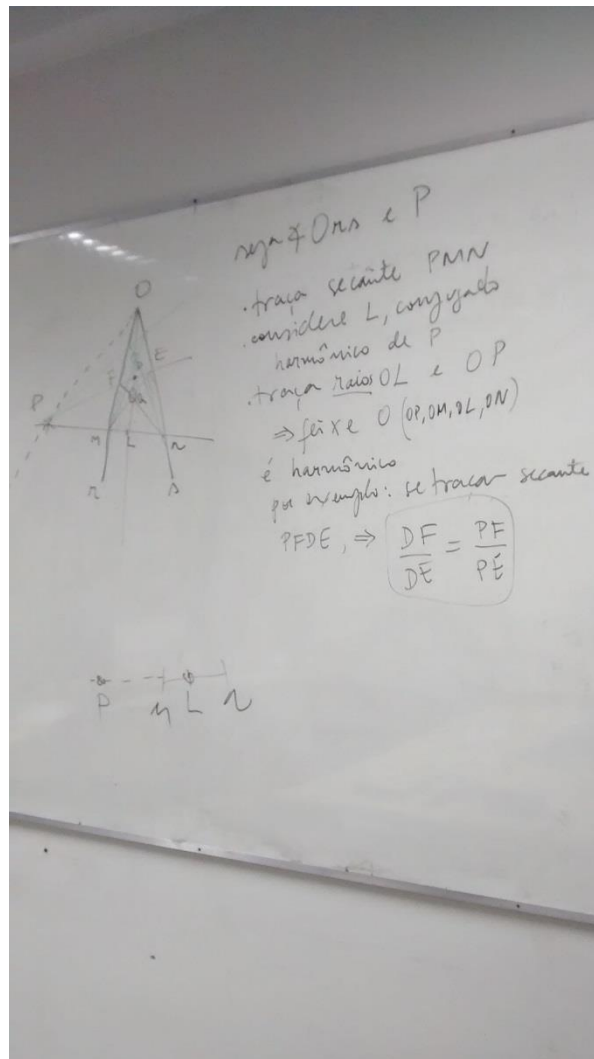 seja ∢ Ors e P
. traça secante PMN
. considere L, conjugado
harmônico de P
. traça raios OL e OP
⇒ feixe O (OP, OM, OL, ON)
é harmônico
por exemplo: se traçar secante
PFDE, ⇒ DF/DE = PF/PE
O
P
F
E
M
L
N
r
s
P
M
L
N